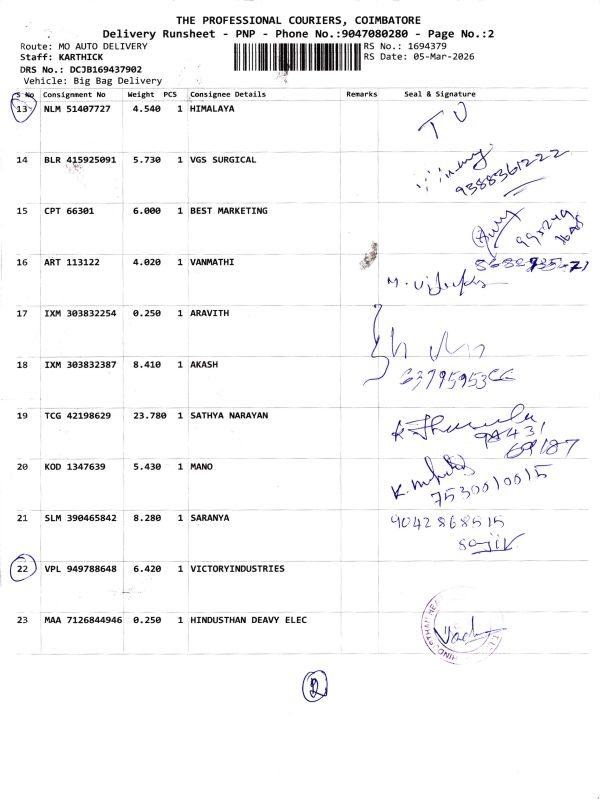 THE PROFESSIONAL COURIERS, COIMBATORE
Delivery Runsheet - PNP - Phone No.:9047080280 - Page No.:2
Route: MO AUTO DELIVERY
RS No.: 1694379
Staff: KARTHICK
RS Date: 05-Mar-2026
DRS No.: DCJB169437902
Vehicle: Big Bag Delivery
S No Consignment No Weight PCS Consignee Details Remarks Seal & Signature
13 NLM 51407727 4.540 1 HIMALAYA
14 BLR 415925091 5.730 1 VGS SURGICAL
9388361222
15 CPT 66301 6.000 1 BEST MARKETING
16 ART 113122 4.020 1 VANMATHI
17 IXM 303832254 0.250 1 ARAVITH
18 IXM 303832387 8.410 1 AKASH
19 TCG 42198629 23.780 1 SATHYA NARAYAN
69187
20 KOD 1347639 5.430 1 MANO
7530010015
21 SLM 390465842 8.280 1 SARANYA
9042868515
22 VPL 949788648 6.420 1 VICTORYINDUSTRIES
23 MAA 7126844946 0.250 1 HINDUSTHAN DEAVY ELEC
2